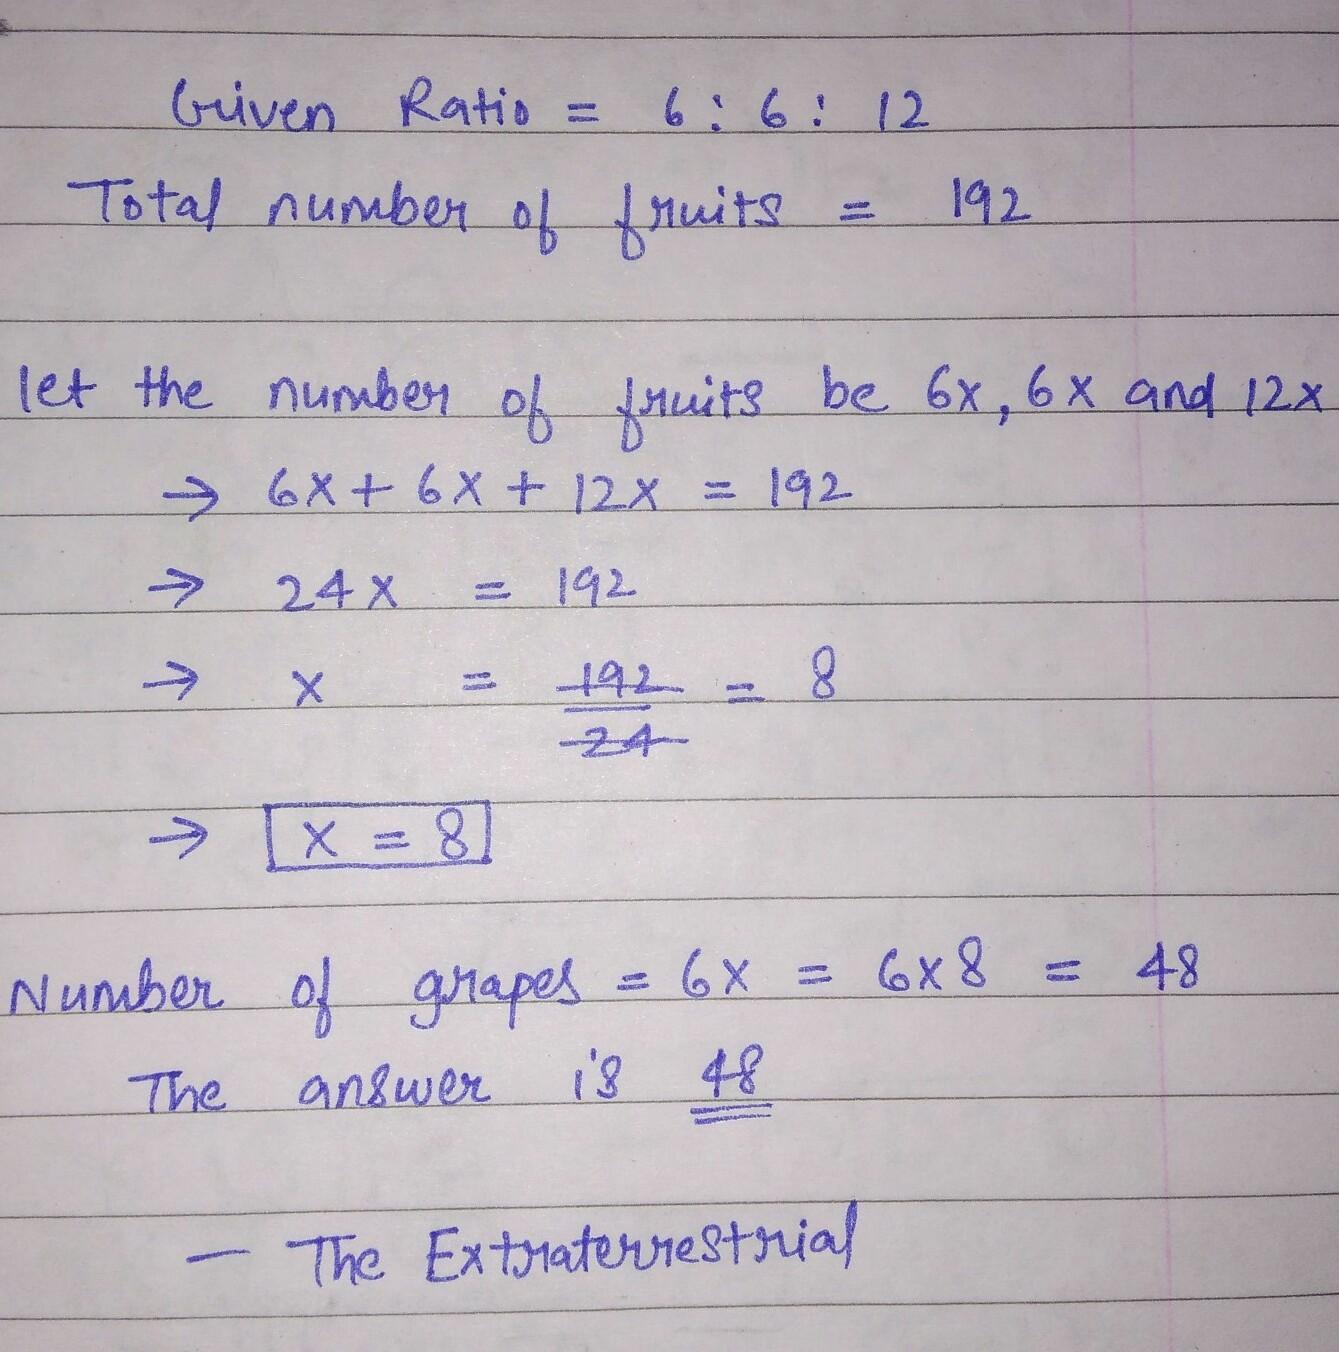 Given Ratio = 6 : 6 : 12
Total number of fruits = 192
let the number of fruits be 6x, 6x and 12x
→ 6x + 6x + 12x = 192
→ 24x = 192
→ x = 192/24 = 8
→ x = 8
Number of grapes = 6x = 6x8 = 48
The answer is 48
— The Extraterrestrial